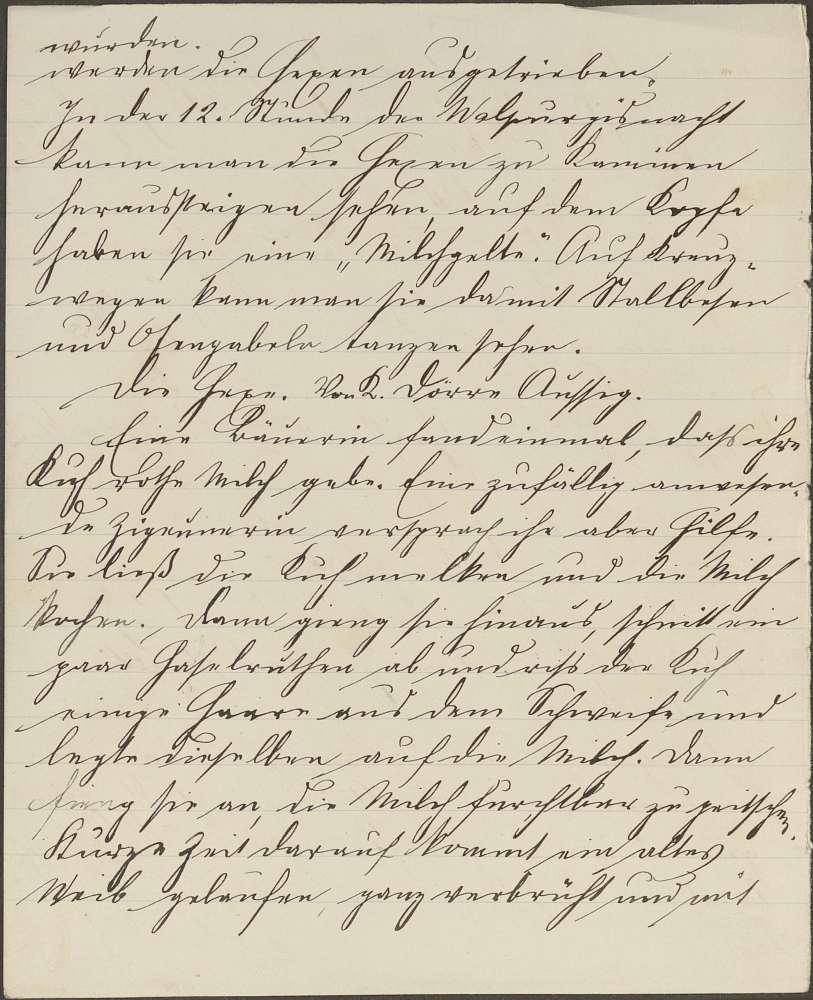 wurden.
werden die Hexen ausgetrieben.
In der 12. Stunde der Walpurgisnacht
kann man die Hexen zu Kaminen
heraussteigen sehen, auf dem Kopfe
haben sie eine „Milchgelte“. Auf Kreuz-
wegen kann man sie da mit Stallbesen
und Ofengabeln tanzen sehen.
Die Hexe. Von K. Dörre Aussig.
Eine Bäuerin fand einmal, dass ihre
Kuh rothe Milch gebe. Eine zufällig anwesen-
de Zigeunerin versprach ihr aber Hilfe.
Sie ließ die Kuh melken und die Milch
kochen. Dann gieng sie hinaus, schnitt ein
paar Haselruthen ab und riss der Kuh
einige Haare aus dem Schweife und
legte dieselben auf die Milch. Dann
fieng sie an, die Milch furchtbar zu peitschen.
Kurze Zeit darauf kommt ein altes
Weib gelaufen, ganz verbrüht und mit